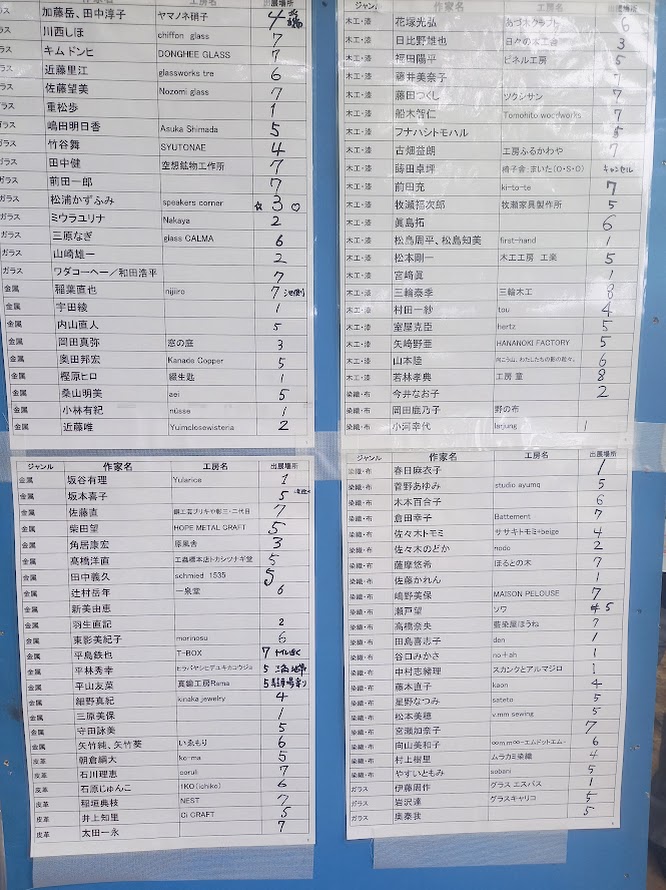 ガラス 加藤岳、田中淳子 ヤマノネ硝子 4
ラス 川西しほ chiffon glass 7
ラス キム ドンヒ DONGHEE GLASS 7
ラス 近藤里江 glassworks tre 6
ラス 佐藤望美 Nozomi glass 7
ラス 重松歩 1
ガラス 嶋田明日香 Asuka Shimada 5
ガラス 竹谷舞 SYUTONAE 4
ガラス 田中健 空想鉱物工作所 7
ガラス 前田一郎 7
ガラス 松浦かずふみ speakers corner ☆ 3 ♡
ガラス ミウラユリナ Nakaya 2
ガラス 三原なぎ glass CALMA 6
ガラス 山崎雄一 2
ガラス ワダコーヘー／和田浩平 7
金属 稲葉直也 nijiiro 7
金属 宇田綾 1
金属 内山直人 5
金属 岡田真弥 窓の庭 3
金属 奥田邦宏 Kanade Copper 5
金属 樫原ヒロ 綴生匙 1
金属 桑山明美 aei 5
金属 小林有紀 nüsse 1
金属 近藤唯 Yuimclosewisteria 2
ジャンル 作家名 工房名 出展場所
金属 坂谷有理 Yularice 1
金属 坂本喜子 5
金属 佐藤直 錻工芸ブリキや彰三・二代目 7
金属 柴田望 HOPE METAL CRAFT 5
金属 角居康宏 原風舎 3
金属 髙橋洋直 工蟲橋本店トカシツナギ堂 5
金属 田中義久 schmied 1535 5
金属 辻村岳年 一泉堂 6
金属 新美由恵
金属 羽生直記 2
金属 東影美紀子 morinosu 6
金属 平島鉄也 T-BOX 7 トイレ近く
金属 平林秀幸 ヒラバヤシヒデユキカコウジョ 5
金属 平山友菜 真鍮工房Rama 5 駐車場寄り
金属 細野真紀 kinaka jewelry 4
金属 三原美保 1
金属 守田詠美 5
金属 矢竹純、矢竹葵 いゑもり 6
皮革 朝倉綱大 ke-ma 5
皮革 石川理恵 coruli 7
皮革 石原じゅんこ 1KO(ichiko) 6
皮革 稲垣典枝 NEST 7
皮革 井上知里 Ci CRAFT 5
皮革 太田一永 7
ジャンル 作家名 工房名 出展場所
木工・漆 花塚光弘 あづみクラフト 6
木工・漆 日比野雄也 日々の木工舎 3
木工・漆 福田陽平 ピネル工房 5
木工・漆 藤井美奈子 7
木工・漆 藤田つくし ツクシサン 7
木工・漆 船木智仁 Tomohito woodworks 7
木工・漆 フナハシトモハル 5
木工・漆 古畑益朗 工房ふるかわや 7
木工・漆 蒔田卓坪 椅子舎・まいた(O・S・O) キャンセル
木工・漆 前田充 ki-to-te 7
木工・漆 牧瀬福次郎 牧瀬家具製作所 5
木工・漆 眞島拓 6
木工・漆 松島周平、松島知美 first-hand 1
木工・漆 松本剛一 木工工房 工楽 5
木工・漆 宮崎眞 1
木工・漆 三輪泰季 三輪木工 8
木工・漆 村田一紗 tou 4
木工・漆 室屋克臣 hertz 5
木工・漆 矢崎野亜 HANANOKI FACTORY 5
木工・漆 山本睦 向こう山、わたしたちの影の低々。 6
木工・漆 若林孝典 工房 童 8
染織・布 今井なお子 2
染織・布 岡田鹿乃子 野の布
染織・布 小河幸代 larjung 1
ジャンル 作家名 工房名 出展場所
染織・布 春日麻衣子 1
染織・布 菅野あゆみ studio ayumq 5
染織・布 木本百合子 6
染織・布 倉田幸子 Battement 7
染織・布 佐々木トモミ ササキトモミ+beige 4
染織・布 佐々木のどか nodo 2
染織・布 薩摩悠香 ほるとの木 7
染織・布 佐藤かれん 1
染織・布 嶋野美保 MAISON PELOUSE 7
染織・布 瀬戸望 ソワ 5
染織・布 高橋奈央 藍染屋ほうね 7
染織・布 田島喜志子 den 1
染織・布 谷口みかさ no+ah 1
染織・布 中村志緒理 スカンクとアルマジロ 1
染織・布 藤本直子 kaon 4
染織・布 星野なつみ sateto 5
染織・布 松本美穂 v.mm sewing 5
染織・布 宮瀬加奈子 7
染織・布 向山美和子 ∞m m∞-エムドットエム- 6
染織・布 村上樹里 ムラカミ染織 4
染織・布 やすいともみ sobani 5
ガラス 伊藤周作 グラス エスパス 1
ガラス 岩沢達 グラスキャリコ 5
ガラス 奥泰我 5